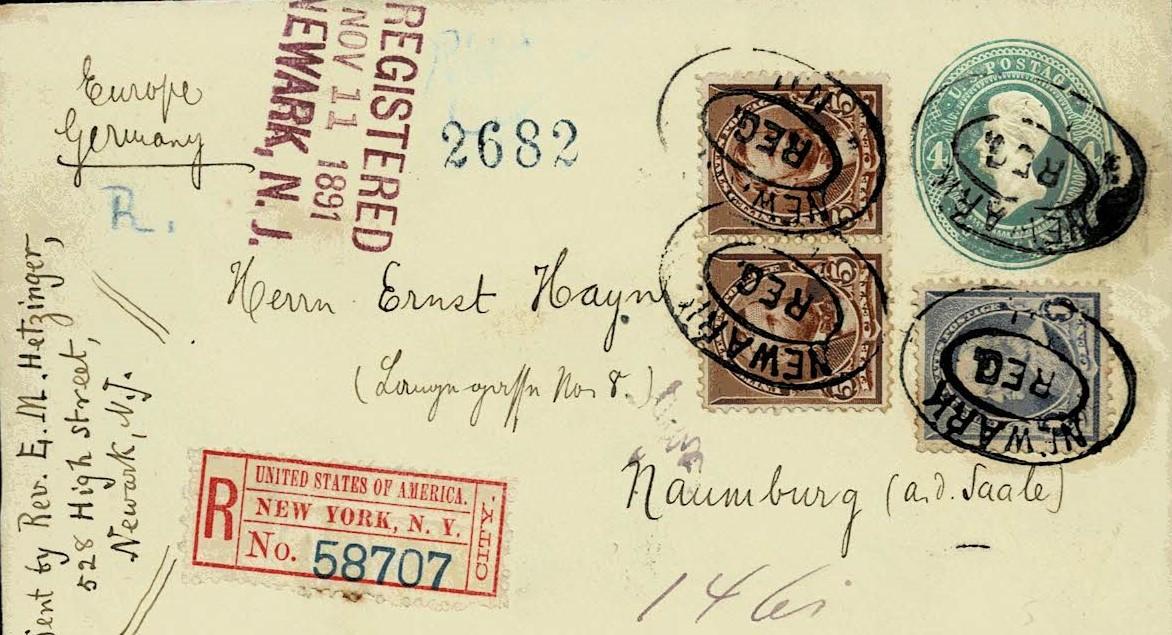 Europe
Germany
R.
REGISTERED
NOV 11 1891
NEWARK, N. J.
2682
Herrn Ernst Hayn
(Langegasse No 8.)
Naumburg (a.d. Saale)
Sent by Rev. E. M. Hetzinger,
528 High street,
Newark, N.J.
R
UNITED STATES OF AMERICA.
NEW YORK, N. Y.
No. 58707
CITY.
U.S. POSTAGE
4
NEWARK
REG.
REG.
NEWARK
REG.
REG.
NEWARK
REG.
REG.
NEWARK
REG.
REG.